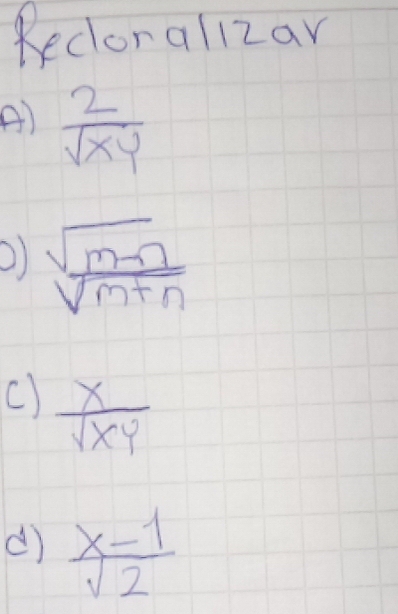 Recionalizar
A) 2/√xy
b) √m-n/√m+n
c) x/√xy
d) x-1/√2